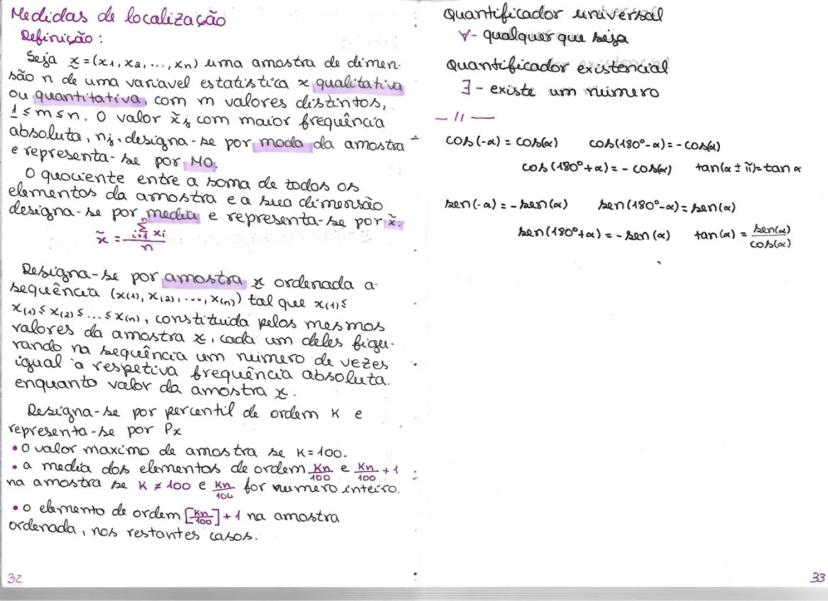 Medidas de localização
Definição:
Seja x̰=(x₁, x₂, ..., xn) uma amostra de dimen-
são n de uma variavel estatistica x qualitativa
ou quantitativa, com m valores distintos,
1≤m≤n. O valor x̃j com maior frequência
absoluta, nj, designa-se por moda da amostra
e representa-se por MO.
O quociente entre a soma de todos os
elementos da amostra e a sua dimensão
designa-se por media e representa-se por x̃.
x̃ = Σ i=1 n xi / n
Designa-se por amostra x̰ ordenada a
sequência (x(1), x(2), ..., x(n)) tal que x(1)≤
x(1)≤x(2)≤...≤x(n), constituida pelos mesmos
valores da amostra x̰, cada um deles figu-
rando na sequência um número de vezes
igual à respetiva frequência absoluta
enquanto valor da amostra x̰.
Designa-se por percentil de ordem K e
representa-se por Px
• O valor maximo de amostra se K=100.
• a media dos elementos de ordem Kn/100 e Kn/100 + 1
na amostra se K ≠ 100 e Kn/100 for numero inteiro.
• o elemento de ordem [Kn/100] + 1 na amostra
ordenada, nos restantes casos.
32
Quantificador universal
∀- qualquer que seja
Quantificador existencial
∃ - existe um número
— 11 —
cos(-α) = cos(α) cos(180°-α) = -cos(α)
cos(180°+α) = -cos(α) tan(α ± π)= tan α
sen(-α) = -sen(α) sen(180°-α) = sen(α)
sen(180°+α) = -sen(α) tan(α) = sen(α)/cos(α)
33